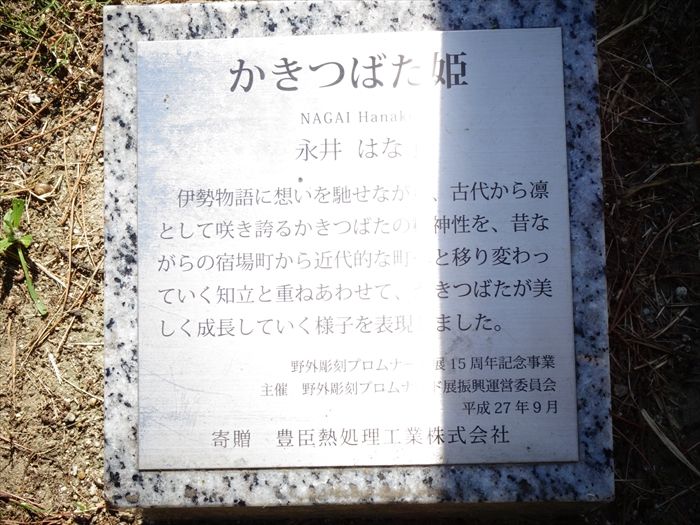 かきつばた姫
NAGAI Hanak
永井 はな
伊勢物語に想いを馳せなが、古代から凛
として咲き誇るかきつばたの神性を、昔な
がらの宿場町から近代的な町と移り変わっ
ていく知立と重ねあわせて、きつばたが美
しく成長していく様子を表現ました。
野外彫刻プロムナード展15周年記念事業
主催 野外彫刻プロムナード展振興運営委員会
平成27年9月
寄贈 豊臣熱処理工業株式会社